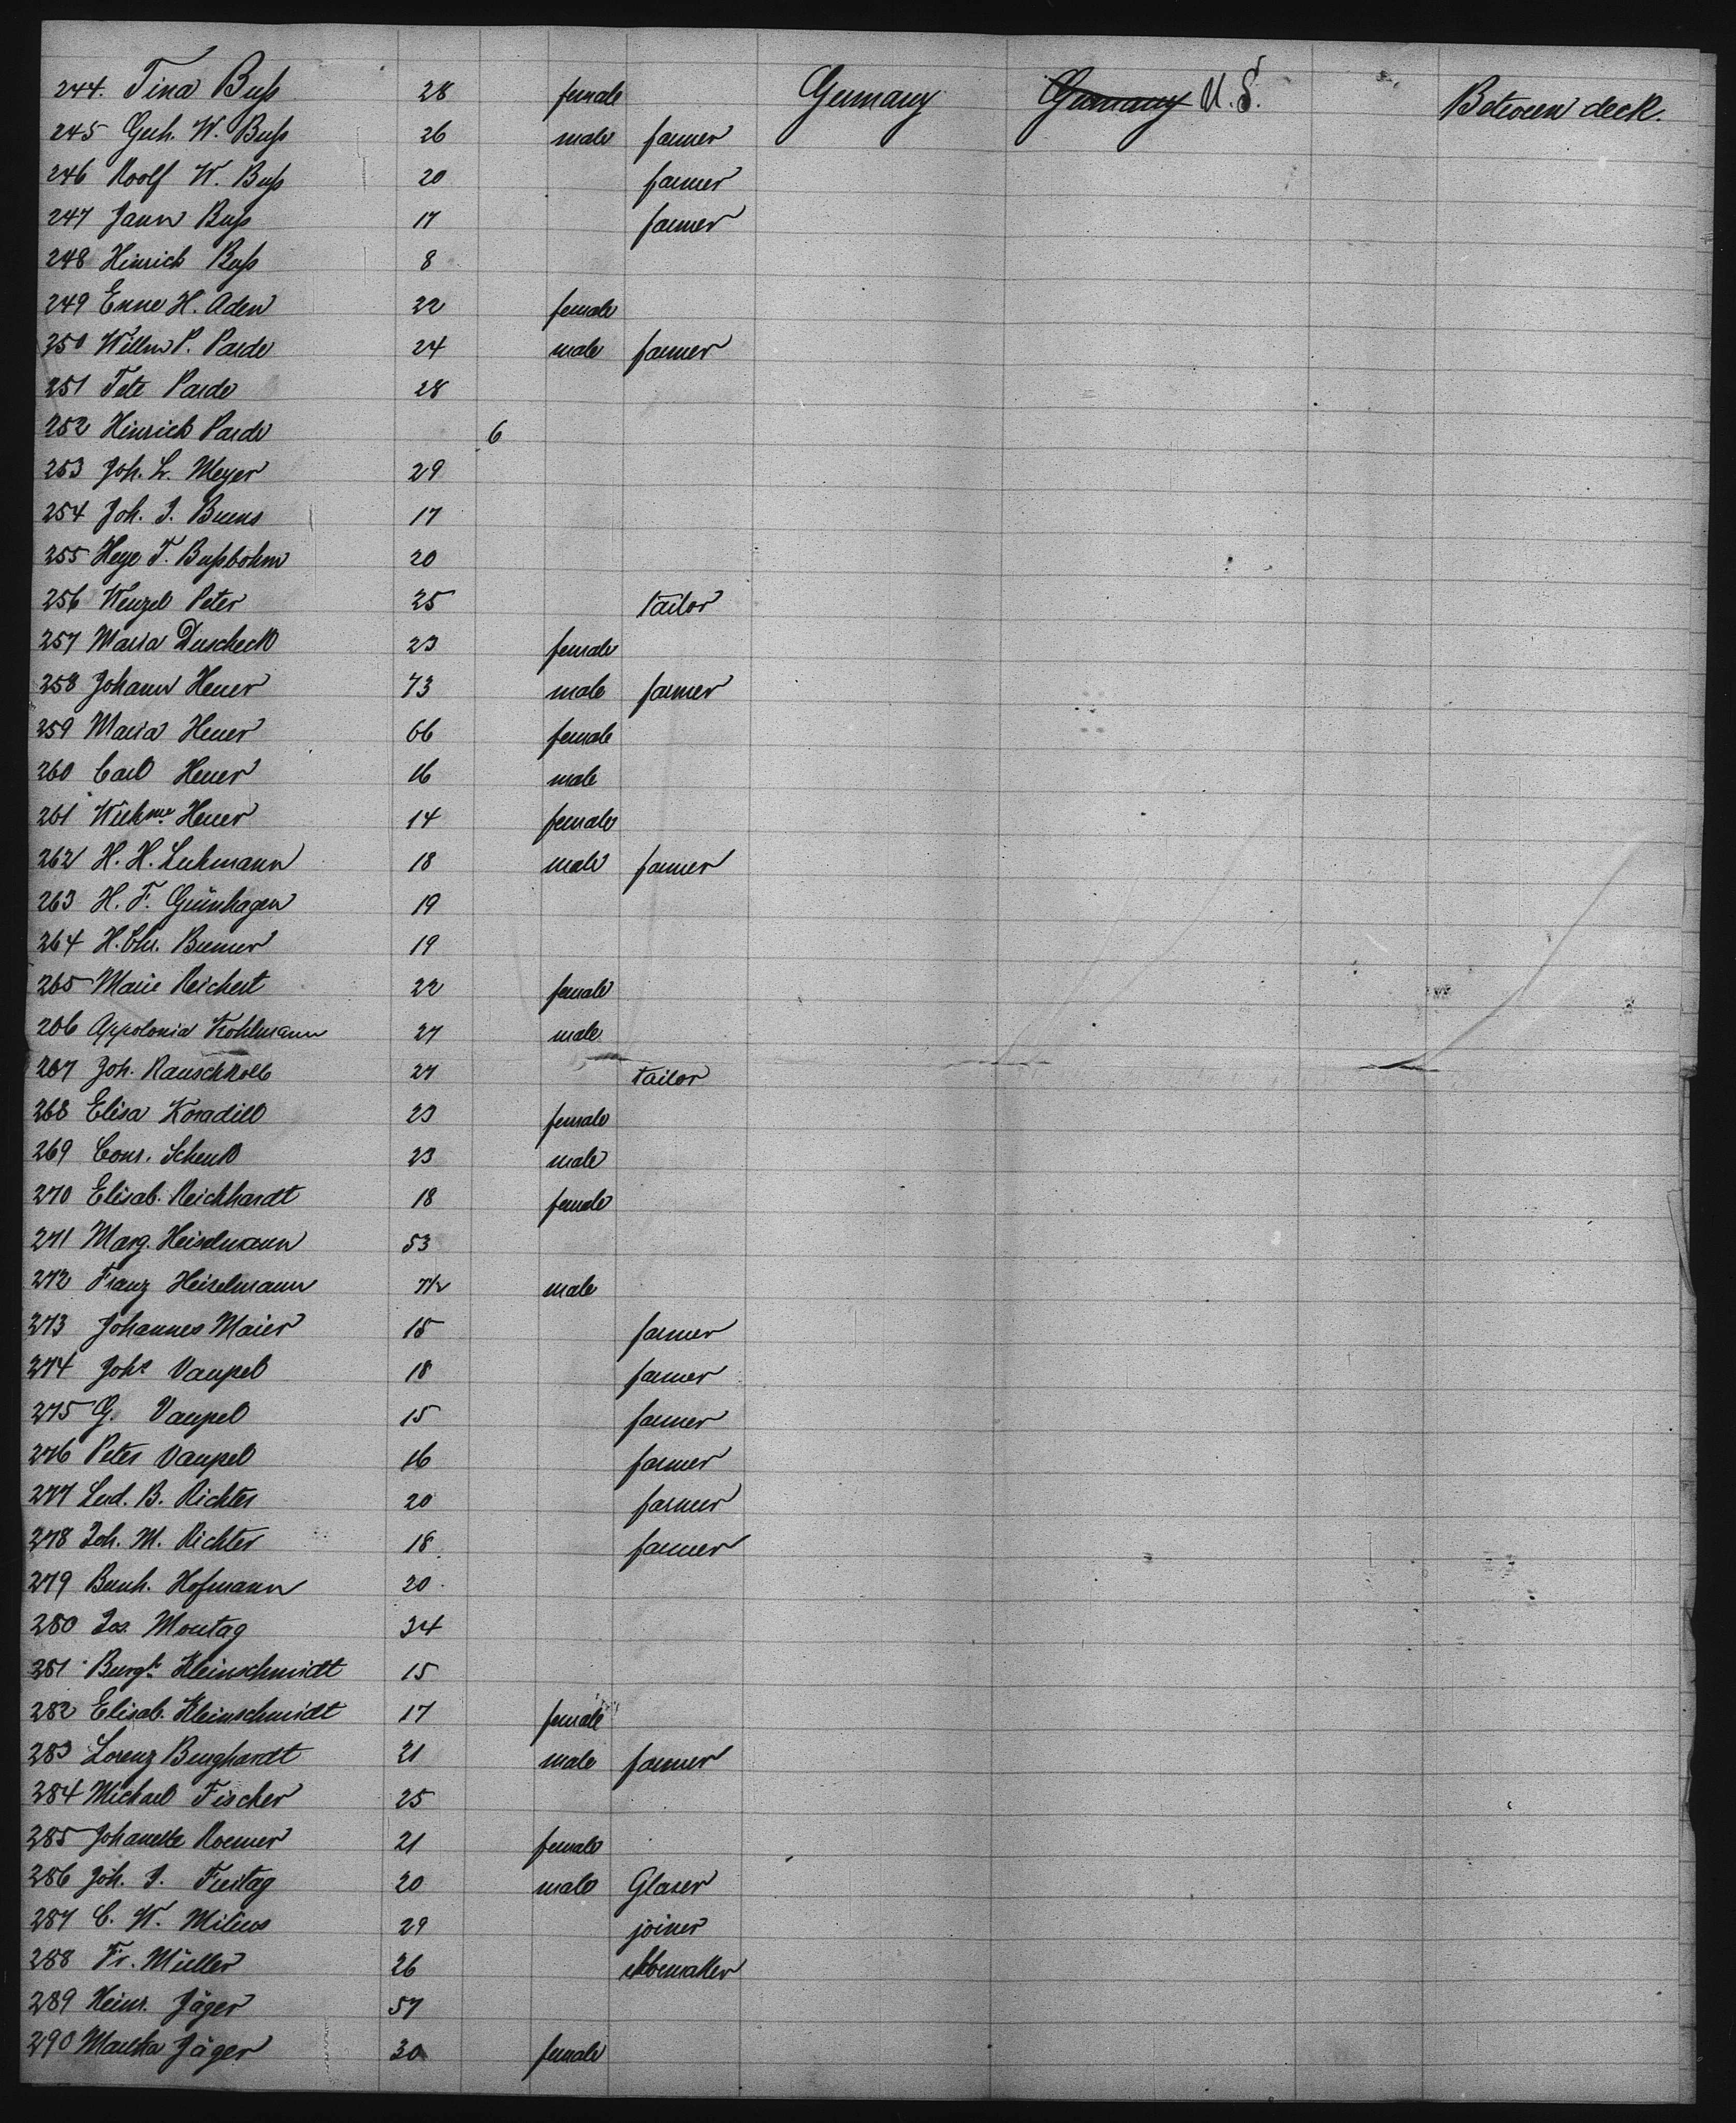 244. Tina Buß 28 female Germany Germany U.S. Between deck.
245 Gerh. W. Buß 26 male farmer
246 Roolf W. Buß 20 farmer
247 Jann Buß 17 farmer
248 Hinrich Buß 8
249 Enne H. Aden 22 female
250 Willm P. Parde 24 male farmer
251 Tete Parde 28
252 Hinrich Parde 6
253 Joh. L. Meyer 29
254 Joh. J. Buens 17
255 Heye T. Bußbohm 20
256 Wenzel Peter 25 tailor
257 Maria Duscheck 23 female
258 Johann Heuer 73 male farmer
259 Maria Heuer 66 female
260 Carl Heuer 16 male
261 Wilhme Heuer 14 female
262 H. H. Luhmann 18 male farmer
263 H. F. Grünhagen 19
264 H. Chr. Bremer 19
265 Marie Reichert 22 female
266 Appolonia Kohlmann 27 male
267 Joh. Rauschkolb 27 tailor
268 Elisa Koradill 23 female
269 Conr. Schenk 23 male
270 Elisab. Reichhardt 18 female
271 Marg. Heiselmann 53
272 Franz Heiselmann 7½ male
273 Johannes Maier 18 farmer
274 Johs Vaupel 18 farmer
275 G. Vaupel 15 farmer
276 Peter Vaupel 16 farmer
277 Lud. B. Richter 20 farmer
278 Joh. M. Richter 18 farmer
279 Bernh. Hofmann 20
280 Jos. Montag 34
281 Burght Kleinschmidt 15
282 Elisab. Kleinschmidt 17 female
283 Lorenz Burghardt 21 male farmer
284 Michael Fischer 25
285 Johanette Roemer 21 female
286 Joh. J. Freitag 20 male Glaser
287 C. W. Milius 29 joiner
288 Fr. Müller 26 shoemaker
289 Heinr. Jäger 57
290 Martha Jäger 30 female